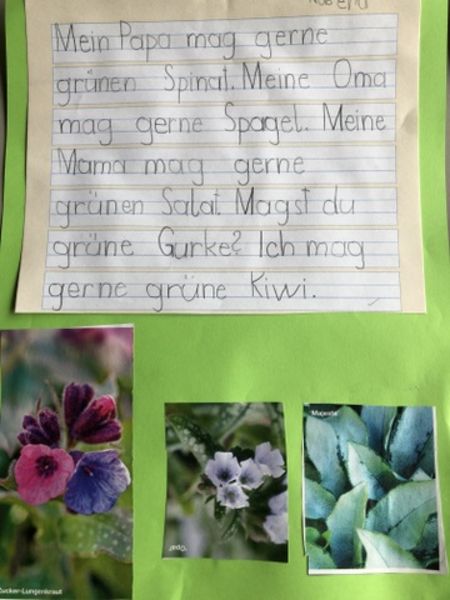 Mein Papa mag gerne
grünen Spinat. Meine Oma
mag gerne Spagel. Meine
Mama mag gerne
grünen Salat. Magst du
grüne Gurke? Ich mag
gerne grüne Kiwi.
'Majeste'
'Opal'
Zucker-Lungenkraut